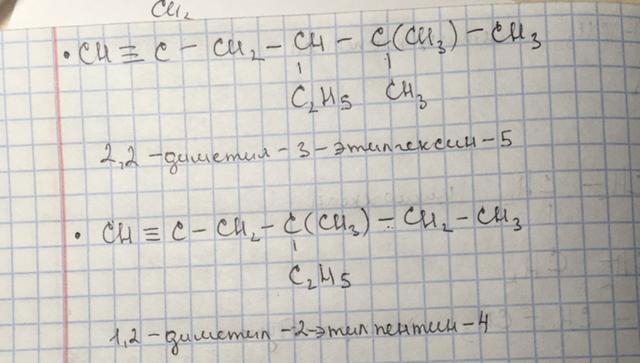 CH₂
• CH ≡ C – CH₂ – CH – C(CH₃) – CH₃
C₂H₅ CH₃
2,2-диметил-3-этилгексин-5
• CH ≡ C – CH₂ – C(CH₃) – CH₂ – CH₃
C₂H₅
1,2-диметил-2-этилпентин-4